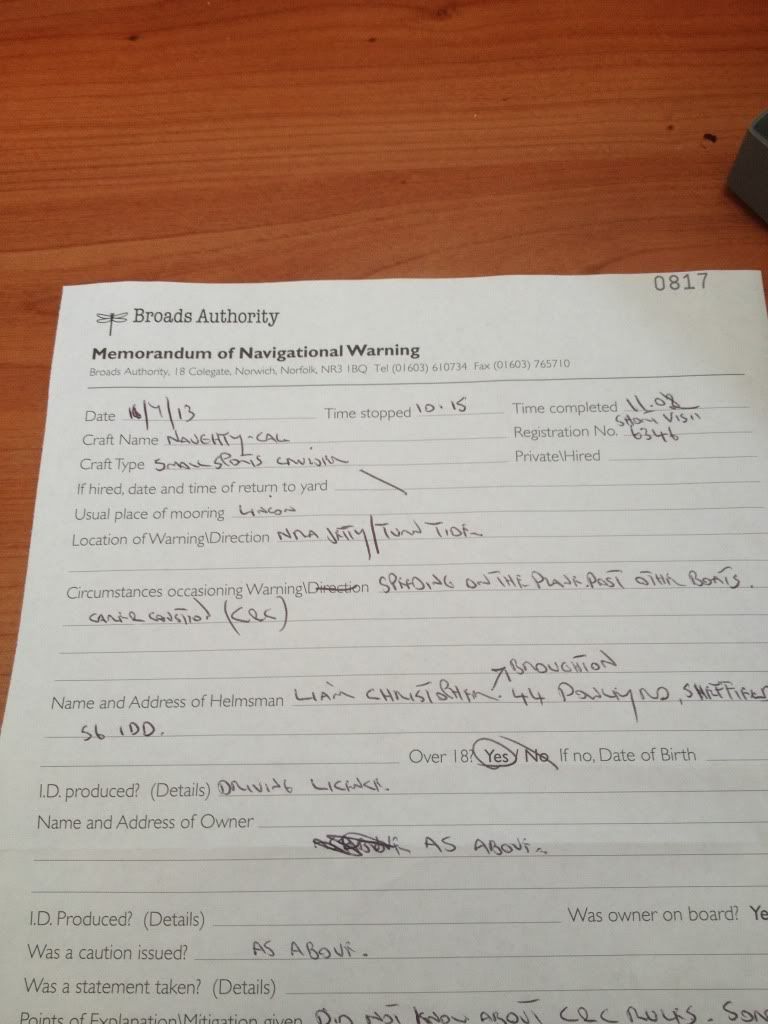 0817
Broads Authority
Memorandum of Navigational Warning
Broads Authority, 18 Colegate, Norwich, Norfolk, NR3 1BQ Tel (01603) 610734 Fax (01603) 765710
Date /7/13 Time stopped 10.15 Time completed 11.08
Craft Name NAUGHTY-CAL Registration No. SHORT VISIT 6346
Craft Type SMALL SPORTS CRUISER Private\Hired
If hired, date and time of return to yard
Usual place of mooring LINCOLN
Location of Warning\Direction NRA JETTY/TURN TIDE
Circumstances occasioning Warning\Direction SPEEDING ON THE PLANE PAST OTHER BOATS.
(CRC)
BROUGHTON
Name and Address of Helmsman LIAM CHRISTOPHER. 44 RD, SHEFFIELD
S6 1DD.
Over 18? Yes/No If no, Date of Birth
I.D. produced? (Details) DRIVING LICENCE.
Name and Address of Owner
AS ABOVE
I.D. Produced? (Details) Was owner on board? Ye
Was a caution issued? AS ABOVE.
Was a statement taken? (Details)
Points of Explanation\Mitigation given DID NOT KNOW ABOUT CRC RULES.